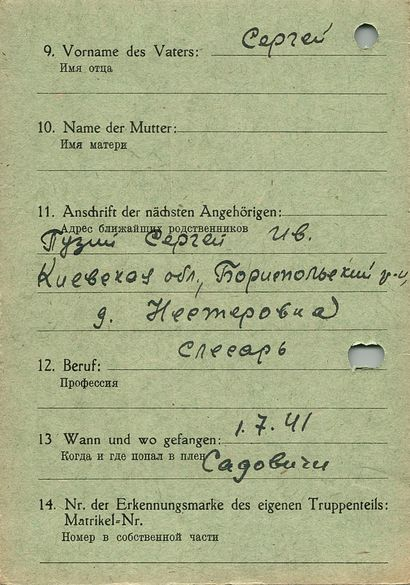 9. Vorname des Vaters: Сергей
Имя отца
10. Name der Mutter:
Имя матери
11. Anschrift der nächsten Angehörigen:
Адрес ближайших родственников
Пузий Сергей Ив.
Киевская обл., Бориспольский р-н,
д. Нестеровка
слесарь
12. Beruf:
Профессия
1.7.41
13 Wann und wo gefangen:
Когда и где попал в плен Садовичи
14. Nr. der Erkennungsmarke des eigenen Truppenteils:
Matrikel-Nr.
Номер в собственной части